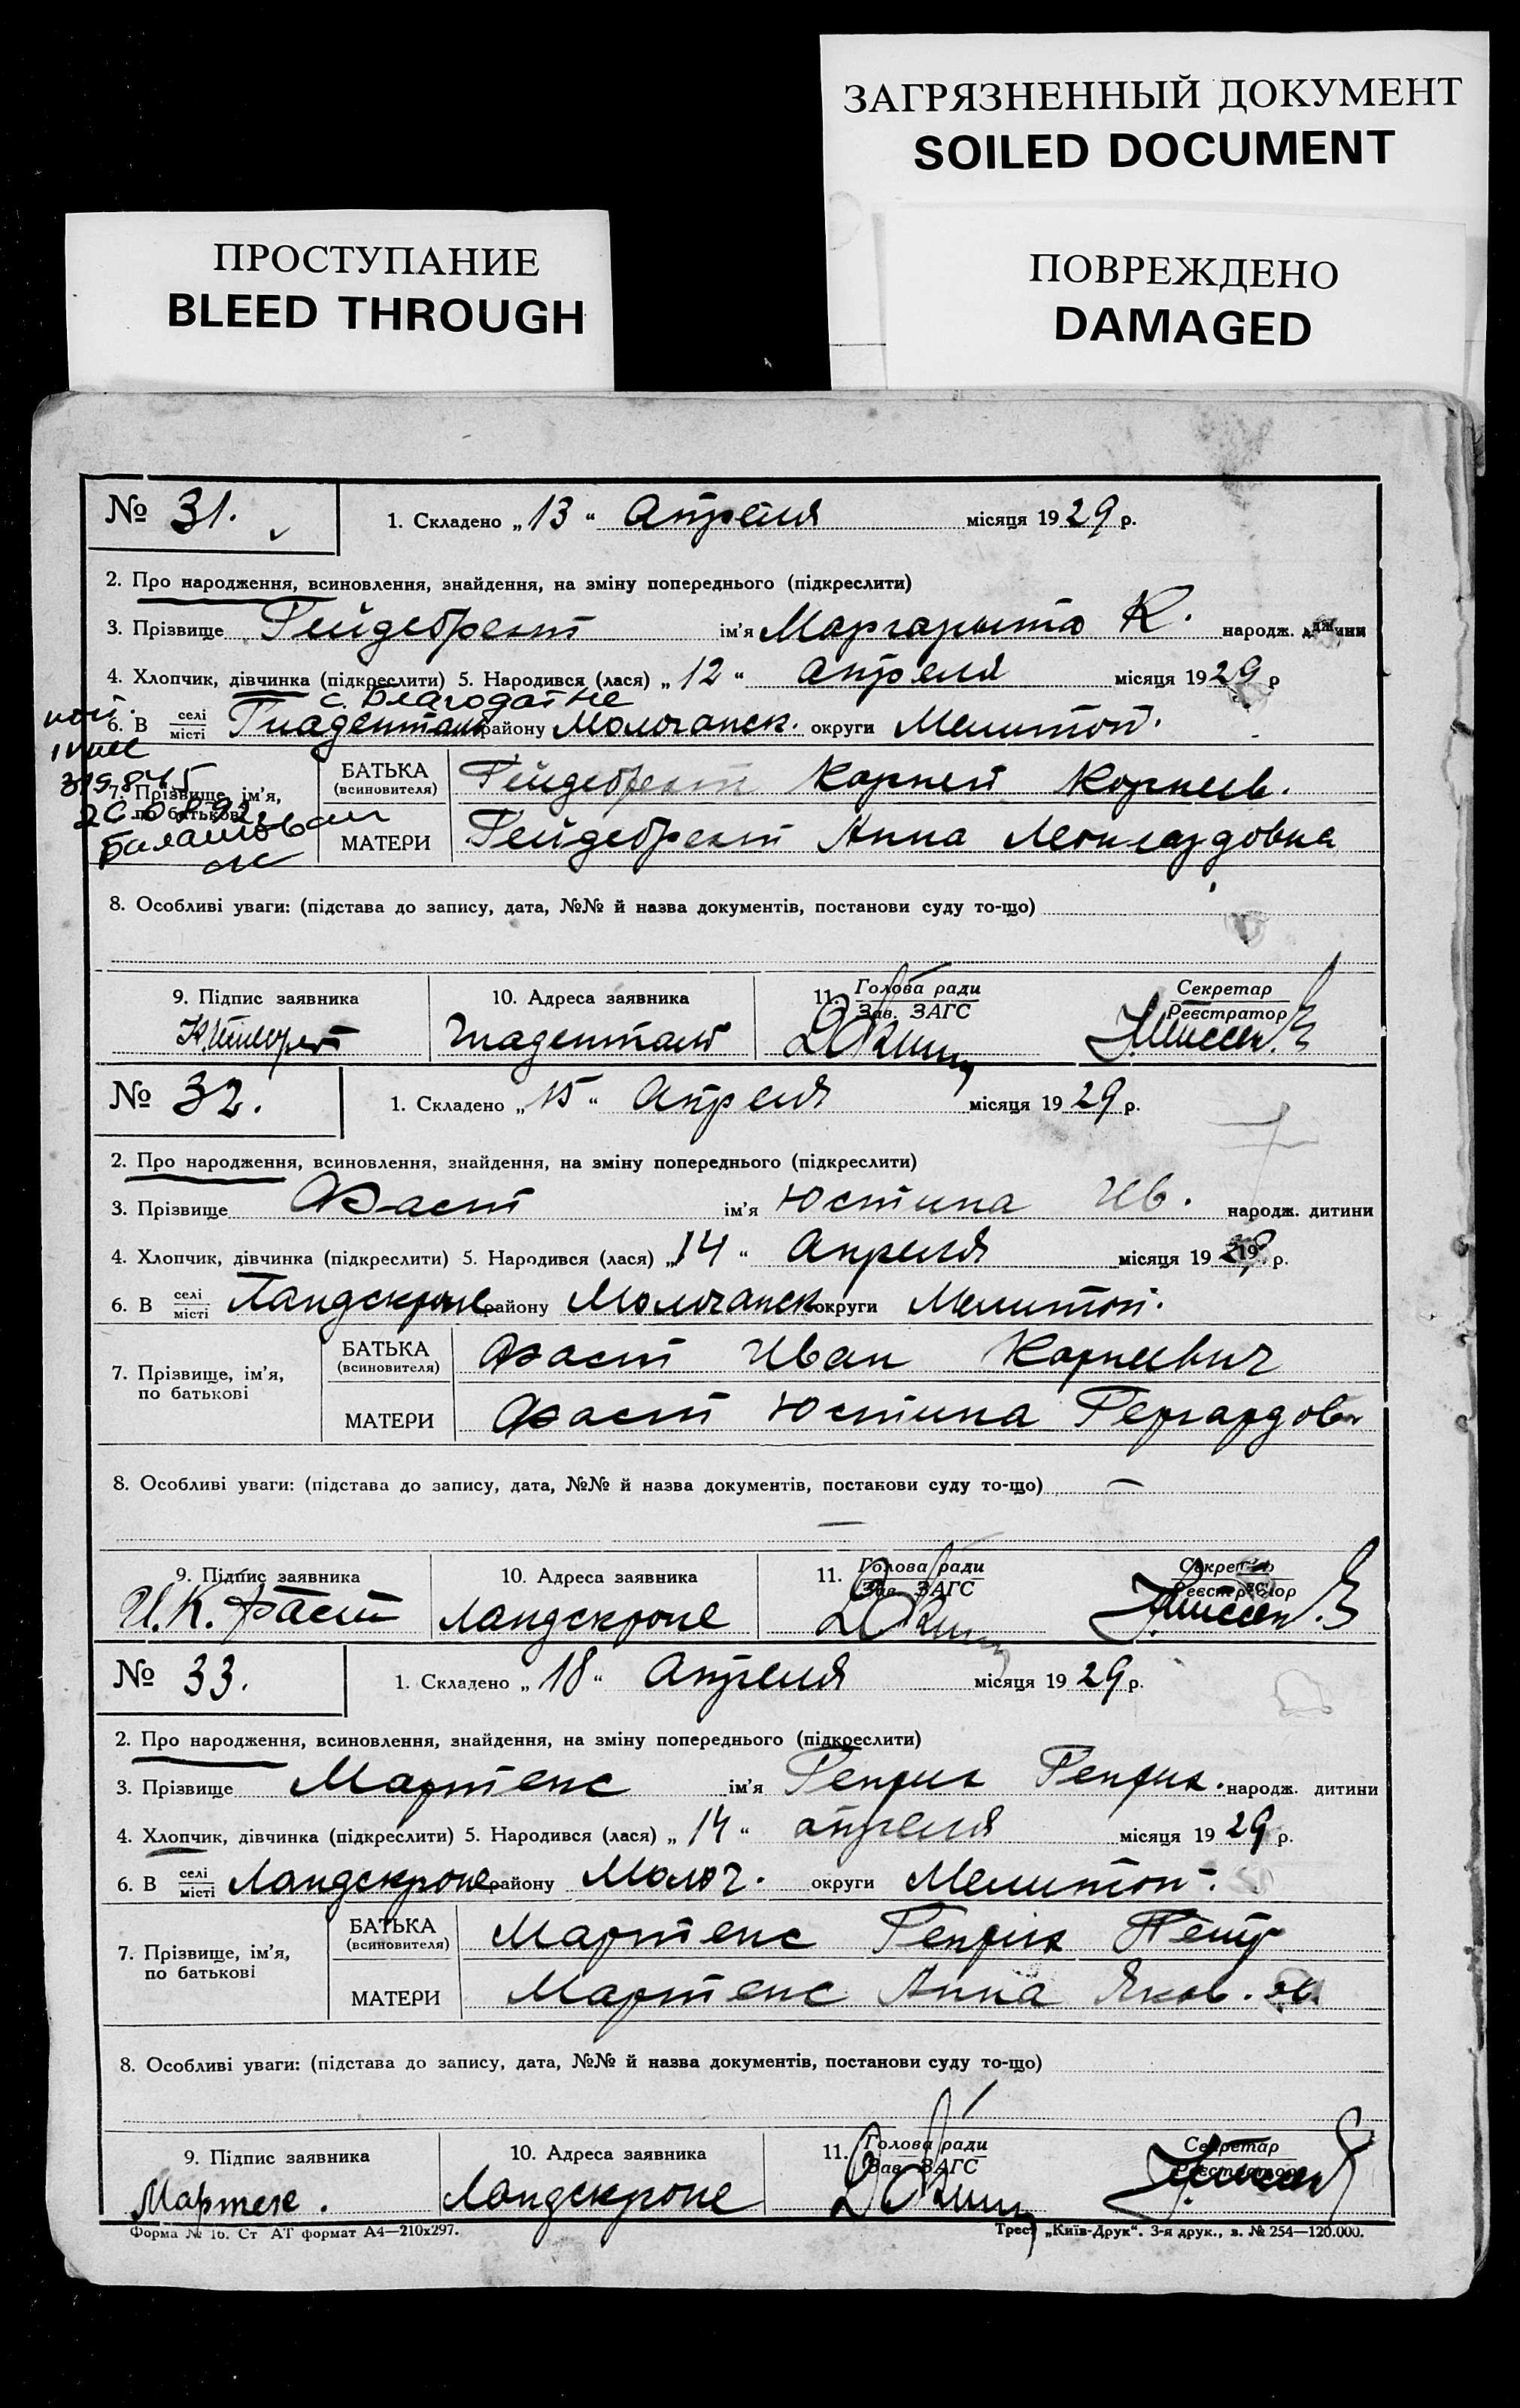 ЗАГРЯЗНЕННЫЙ ДОКУМЕНТ
SOILED DOCUMENT
ПРОСТУПАНИЕ
BLEED THROUGH
ПОВРЕЖДЕНО
DAMAGED
№ 31. 1. Складено „13“ Апреля місяця 1929 р.
2. Про народження, всиновлення, знайдення, на зміну попереднього (підкреслити)
3. Прізвище Гейдебрехт ім'я Маргарыта К. народж. дитини
4. Хлопчик, дівчинка (підкреслити) 5. Народився (лася) „12“ апреля місяця 1929 р
с. Благодатне
6. В селі місті Гнаденталь району Молочанск. округи Мелитоп.
7. Прізвище, ім'я, по батькові
БАТЬКА (всиновителя) Гейдебрехт Корней Корнеев.
МАТЕРИ Гейдебрехт Анна Леонгардовна
8. Особливі уваги: (підстава до запису, дата, №№ й назва документів, постанови суду то-що)
9. Підпис заявника 10. Адреса заявника 11. Голова ради Зав. ЗАГС Секретар Реєстратор
Гнаденталь
№ 32. 1. Складено „15“ Апреля місяця 1929 р.
2. Про народження, всиновлення, знайдення, на зміну попереднього (підкреслити)
3. Прізвище Фаст ім'я Юстина Ив. народж. дитини
4. Хлопчик, дівчинка (підкреслити) 5. Народився (лася) „14“ Апреля місяця 1929 р.
6. В селі місті Ландскроне району Молочанск округи Мелитоп.
7. Прізвище, ім'я, по батькові
БАТЬКА (всиновителя) Фаст Иван Корнеевич
МАТЕРИ Фаст Юстина Гергардовн
8. Особливі уваги: (підстава до запису, дата, №№ й назва документів, постанови суду то-що) —
—
9. Підпис заявника 10. Адреса заявника 11. Голова ради Зав. ЗАГС Секретар Реєстратор
И. К. Фаст Ландскроне
№ 33. 1. Складено „18“ Апреля місяця 1929 р.
2. Про народження, всиновлення, знайдення, на зміну попереднього (підкреслити)
3. Прізвище Мартенс ім'я Генрих Генрих. народж. дитини
4. Хлопчик, дівчинка (підкреслити) 5. Народився (лася) „14“ апреля місяця 1929 р.
6. В селі місті Ландскроне району Молоч. округи Мелитоп.
7. Прізвище, ім'я, по батькові
БАТЬКА (всиновителя) Мартенс Генрих Петр
МАТЕРИ Мартенс Анна Яков.
8. Особливі уваги: (підстава до запису, дата, №№ й назва документів, постанови суду то-що)
9. Підпис заявника 10. Адреса заявника 11. Голова ради Зав. ЗАГС Секретар Реєстратор
Мартенс. Ландскроне
Форма № 16. Ст АТ формат А4—210х297. Трест „Київ-Друк“. 3-я друк., з. № 254—120.000.